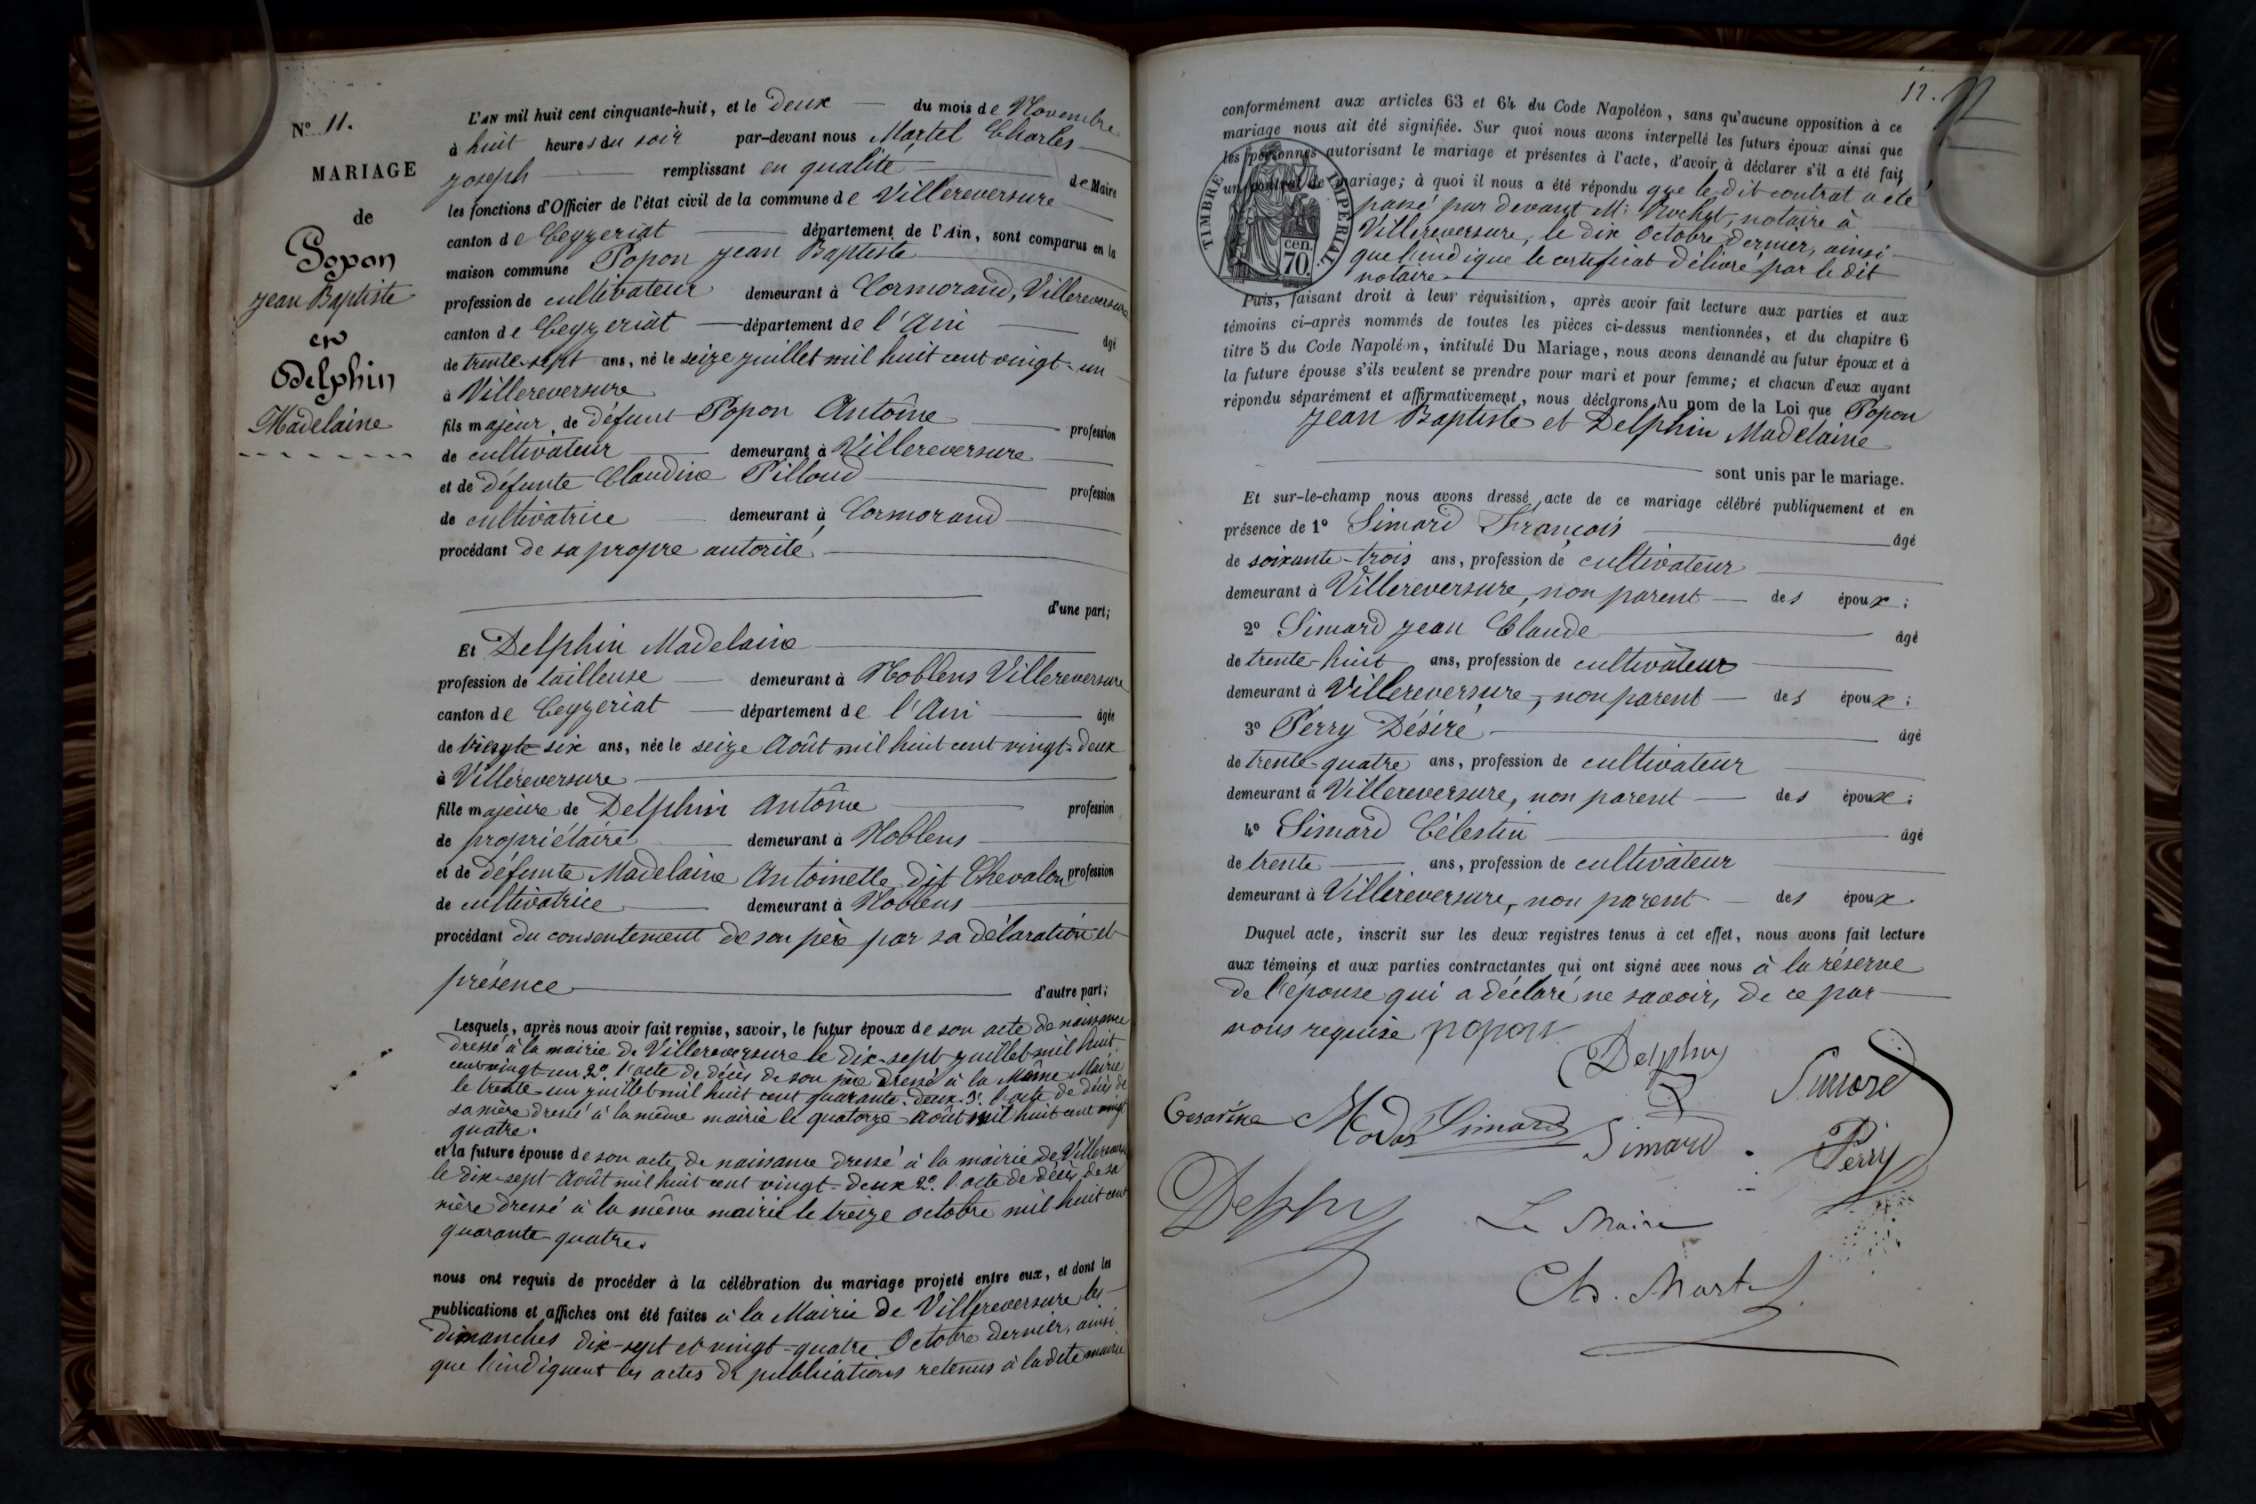 N° 11.
MARIAGE
de
Popon
Jean Baptiste
et
Delphin
Madelaine
L'AN mil huit cent cinquante-huit, et le Deux du mois de Novembre
à huit heures du soir par-devant nous Martel Charles
Joseph remplissant en qualité de Maire
les fonctions d'Officier de l'état civil de la commune de Villereversure
canton de Ceyzeriat département de l'Ain, sont comparus en la
maison commune Popon Jean Baptiste
profession de cultivateur demeurant à Cormorand, Villereversure
canton de Ceyzeriat département de l'Ain âgé
de trente-sept ans, né le seize juillet mil huit cent vingt-un
à Villereversure
fils majeur de défunt Popon Antoine profession
de cultivateur demeurant à Villereversure
et de défunte Claudine Pilloud profession
de cultivatrice demeurant à Cormorand
procédant de sa propre autorité
d'une part;
Et Delphin Madelaine
profession de tailleuse demeurant à Noblens Villereversure
canton de Ceyzeriat département de l'Ain âgée
de six ans, née le seize Août mil huit cent vingt-deux
à Villereversure
fille majeure de Delphin Antoine profession
de propriétaire demeurant à Noblens
et de défunte Madelaine Antoinette dit Chevalon profession
de cultivatrice demeurant à Noblens
procédant du consentement de son père par sa déclaration et
présence d'autre part;
Lesquels, après nous avoir fait remise, savoir, le futur époux de son acte de naissance
dressé à la mairie de Villereversure le dix-sept juillet mil huit
cent vingt-un 2° l'acte de décès de son père dressé à la Même Mairie
le trente-un juillet mil huit cent quarante-deux 3° l'acte de décès de
sa mère dressé à la même mairie le quatorze Août mil huit cent vingt
quatre.
et la future épouse de son acte de naissance dressé à la mairie de Villereversure
le dix-sept Août mil huit cent vingt-deux 2° l'acte de décès de sa
mère dressé à la même mairie le treize octobre mil huit cent
quarante-quatre.
nous ont requis de procéder à la célébration du mariage projeté entre eux, et dont les
publications et affiches ont été faites à la Mairie de Villereversure les
Dimanches dix-sept et vingt-quatre Octobre dernier, ainsi
que l'indiquent les actes de publications retenus à la dite mairie
12.
conformément aux articles 63 et 64 du Code Napoléon, sans qu'aucune opposition à ce
mariage nous ait été signifiée. Sur quoi nous avons interpellé les futurs époux ainsi que
les personnes autorisant le mariage et présentes à l'acte, d'avoir à déclarer s'il a été fait
un contrat de mariage; à quoi il nous a été répondu que le dit contrat a été
passé par devant Me Rochet, notaire à
Villereversure, le dix Octobre dernier, ainsi
que l'indique le certificat délivré par le dit
notaire
TIMBRE IMPÉRIAL.
cen.
70.
Puis, faisant droit à leur réquisition, après avoir fait lecture aux parties et aux
témoins ci-après nommés de toutes les pièces ci-dessus mentionnées, et du chapitre 6
titre 5 du Code Napoléon, intitulé Du Mariage, nous avons demandé au futur époux et à
la future épouse s'ils veulent se prendre pour mari et pour femme; et chacun d'eux ayant
répondu séparément et affirmativement, nous déclarons Au nom de la Loi que Popon
Jean Baptiste et Delphin Madelaine
sont unis par le mariage.
Et sur-le-champ nous avons dressé acte de ce mariage célébré publiquement et en
présence de 1° Simard François âgé
de soixante-trois ans, profession de cultivateur
demeurant à Villereversure, non parent des époux;
2° Simard Jean Claude âgé
de trente-huit ans, profession de cultivateur
demeurant à Villereversure, non parent des époux;
3° Perry Désiré âgé
de trente-quatre ans, profession de cultivateur
demeurant à Villereversure, non parent des époux;
4° Simard Célestin âgé
de trente ans, profession de cultivateur
demeurant à Villereversure, non parent des époux.
Duquel acte, inscrit sur les deux registres tenus à cet effet, nous avons fait lecture
aux témoins et aux parties contractantes qui ont signé avec nous à la réserve
de l'épouse qui a déclaré ne savoir, de ce par
nous requise popon
Delphin
Simard
Cesarine Simard
Simard
Perry
Delphin
Le Maire
Ch. Martel